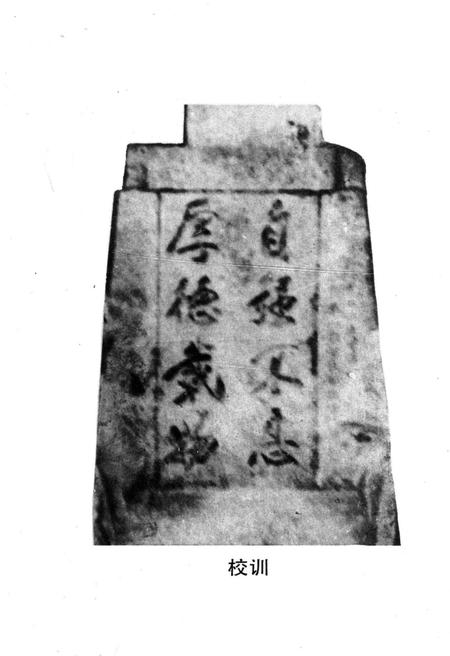 自强不息
厚德載物
校训